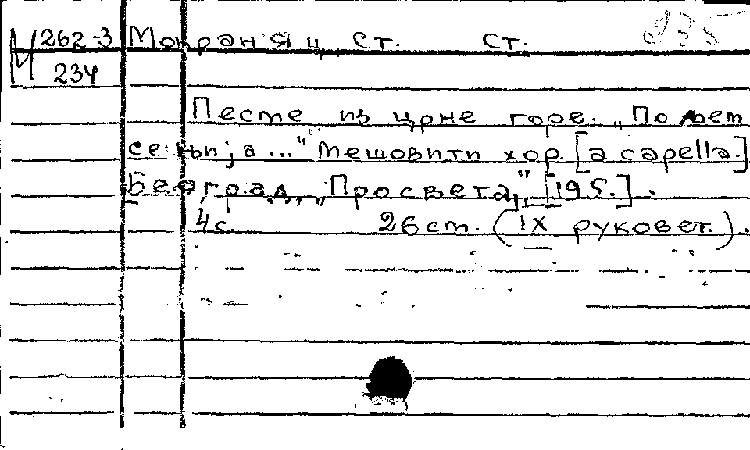 М 262-3 Мокрањац Ст. Ст.
234
Песме из Црне горе. „Пољет
се вија..." Мешовити хор [a capella.]
Београд, „Просвета", [195.].
4 с. 26 cm. (IX руковет.).